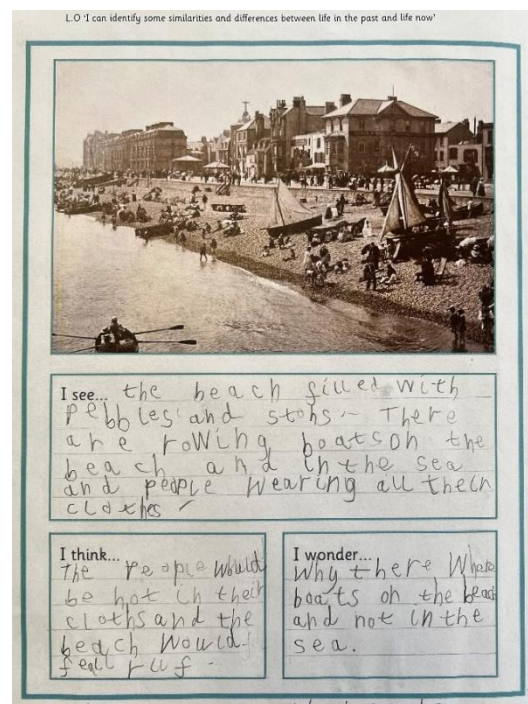 L.O 'I can identify some similarities and differences between life in the past and life now'
I see... the beach filled with
pebbles and stons There
are rowing boats on the
beach and in the sea
and people wearing all their
clothes
I think...
The people would
be hot in their
cloths and the
beach would
feall ruf.
I wonder...
Why there Whare
boats on the beach
and not in the
sea.